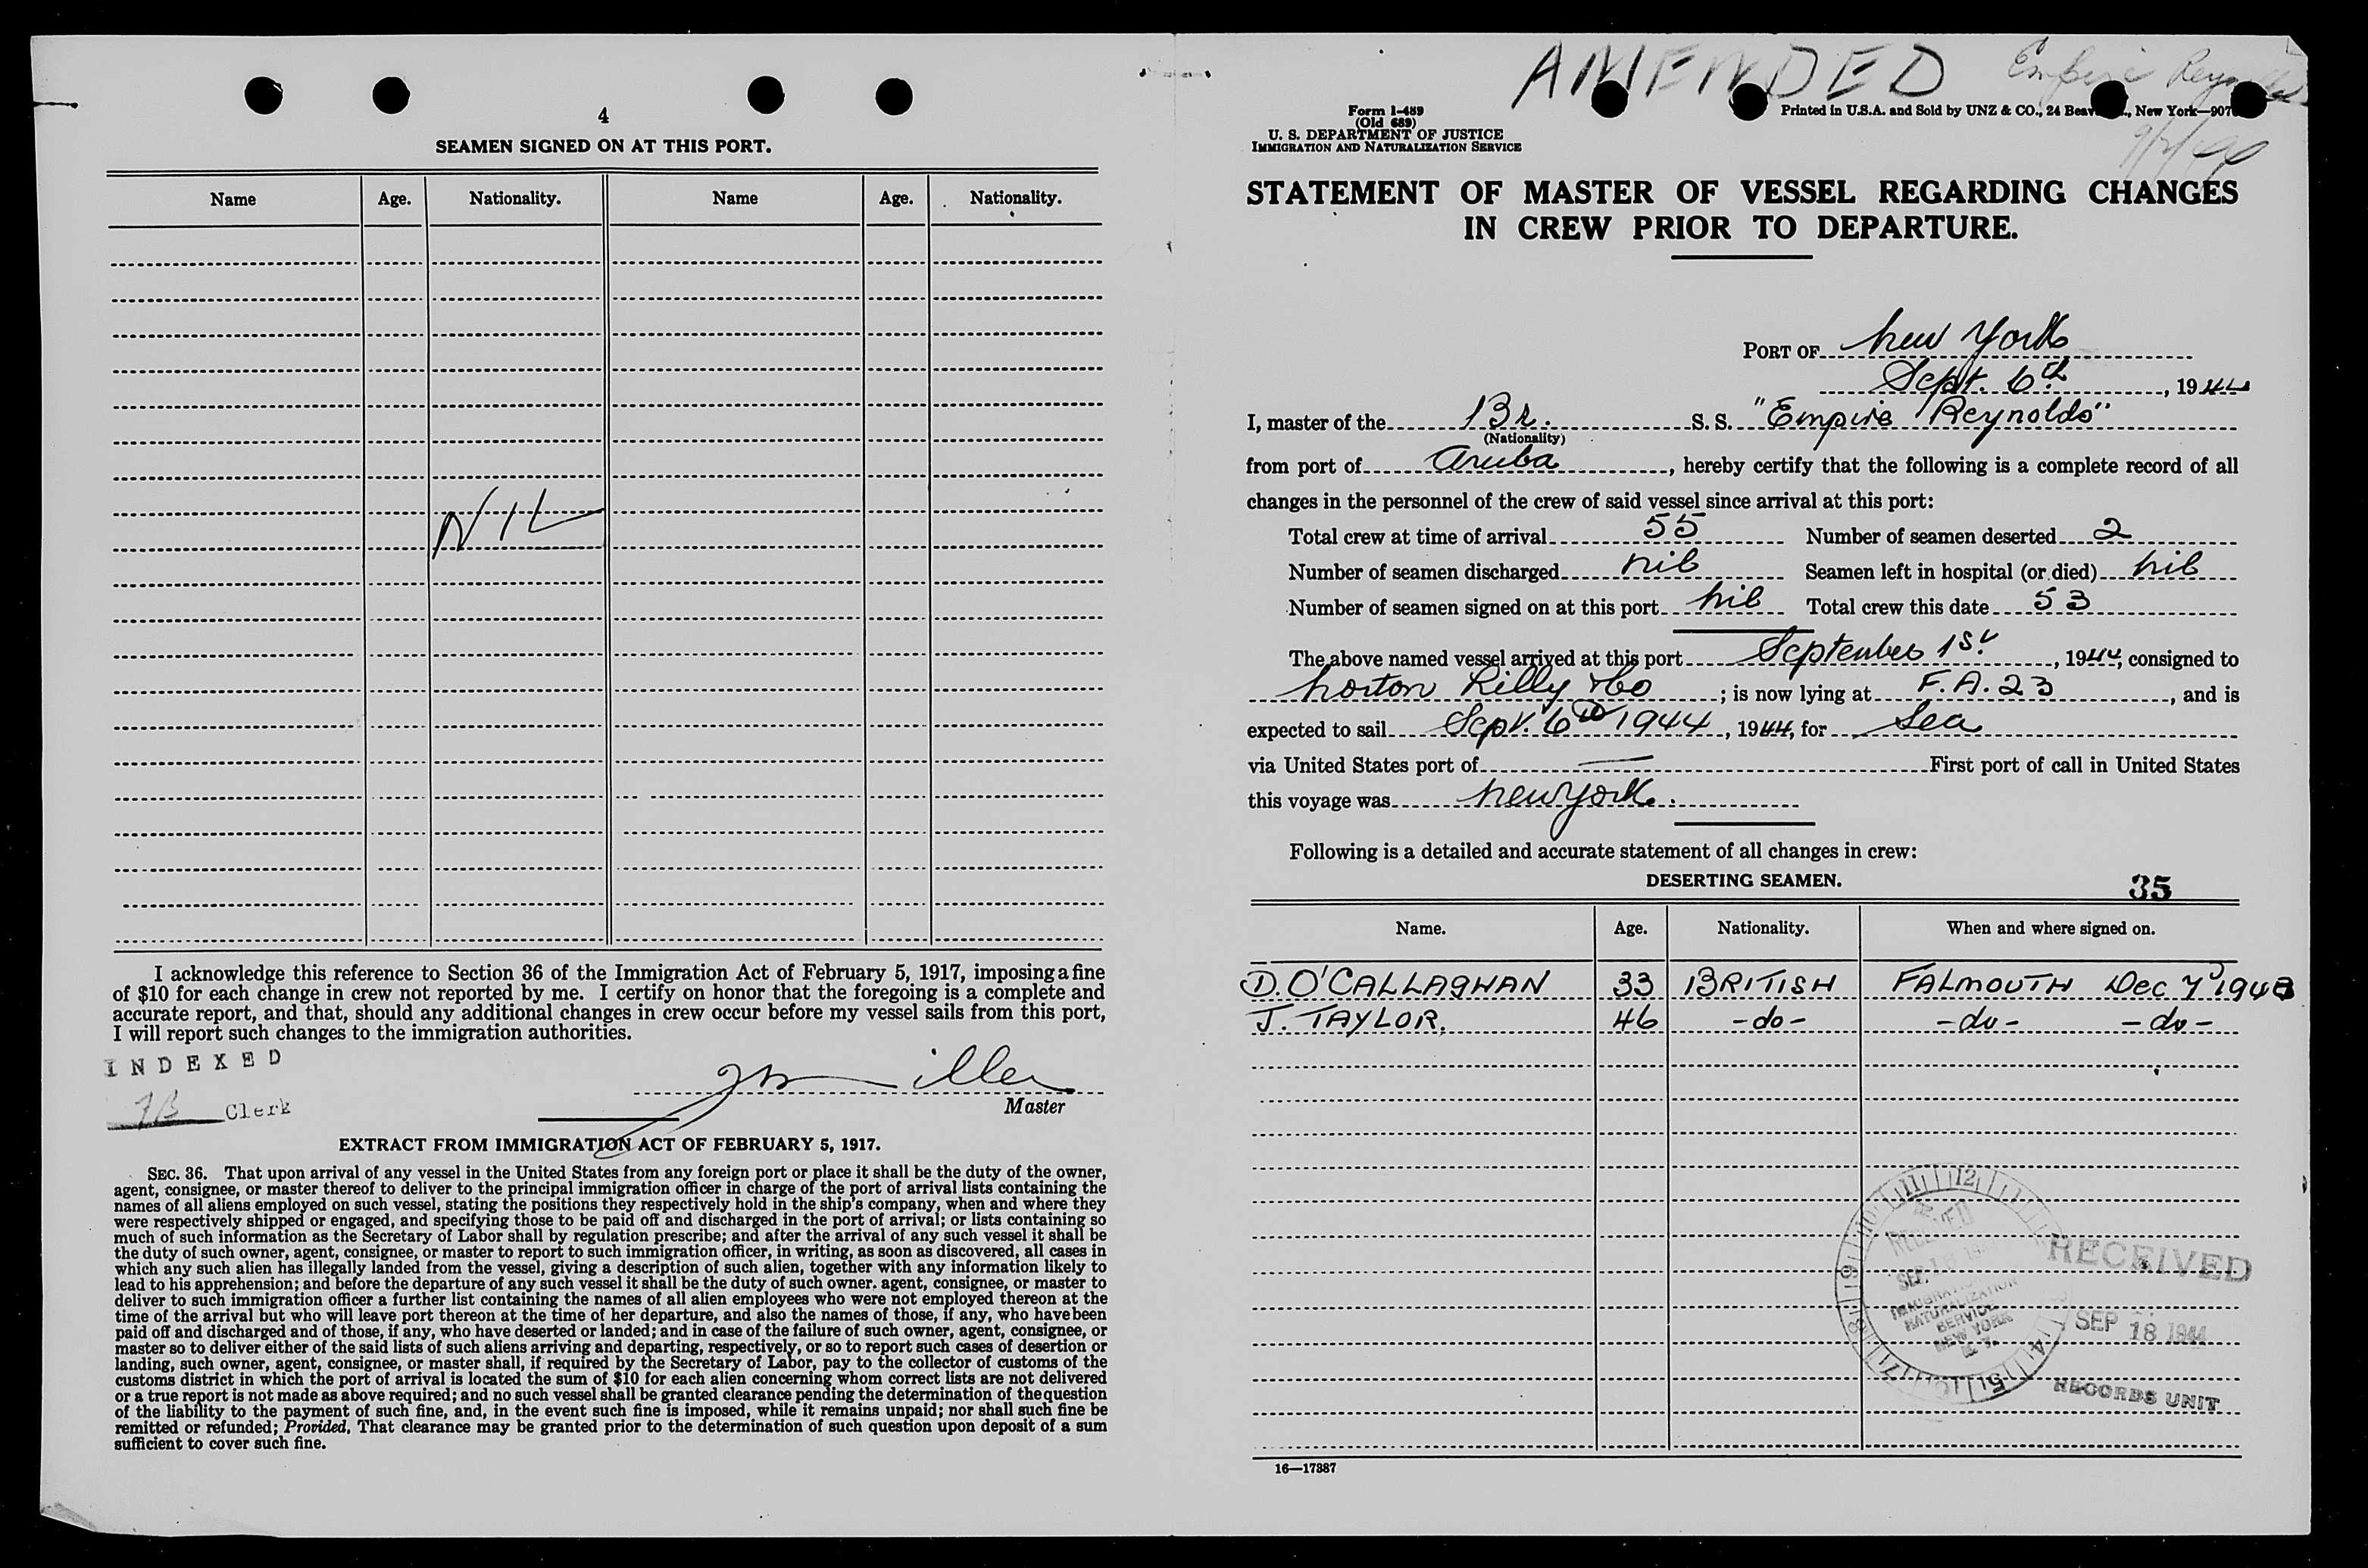 4
SEAMEN SIGNED ON AT THIS PORT.
Name Age. Nationality. Name Age. Nationality.
NIL
I acknowledge this reference to Section 36 of the Immigration Act of February 5, 1917, imposing a fine
of $10 for each change in crew not reported by me. I certify on honor that the foregoing is a complete and
accurate report, and that, should any additional changes in crew occur before my vessel sails from this port,
I will report such changes to the immigration authorities.
INDEXED
Clerk
Master
EXTRACT FROM IMMIGRATION ACT OF FEBRUARY 5, 1917.
SEC. 36. That upon arrival of any vessel in the United States from any foreign port or place it shall be the duty of the owner,
agent, consignee, or master thereof to deliver to the principal immigration officer in charge of the port of arrival lists containing the
names of all aliens employed on such vessel, stating the positions they respectively hold in the ship's company, when and where they
were respectively shipped or engaged, and specifying those to be paid off and discharged in the port of arrival; or lists containing so
much of such information as the Secretary of Labor shall by regulation prescribe; and after the arrival of any such vessel it shall be
the duty of such owner, agent, consignee, or master to report to such immigration officer, in writing, as soon as discovered, all cases in
which any such alien has illegally landed from the vessel, giving a description of such alien, together with any information likely to
lead to his apprehension; and before the departure of any such vessel it shall be the duty of such owner. agent, consignee, or master to
deliver to such immigration officer a further list containing the names of all alien employees who were not employed thereon at the
time of the arrival but who will leave port thereon at the time of her departure, and also the names of those, if any, who have been
paid off and discharged and of those, if any, who have deserted or landed; and in case of the failure of such owner, agent, consignee, or
master so to deliver either of the said lists of such aliens arriving and departing, respectively, or so to report such cases of desertion or
landing, such owner, agent, consignee, or master shall, if required by the Secretary of Labor, pay to the collector of customs of the
customs district in which the port of arrival is located the sum of $10 for each alien concerning whom correct lists are not delivered
or a true report is not made as above required; and no such vessel shall be granted clearance pending the determination of the question
of the liability to the payment of such fine, and, in the event such fine is imposed, while it remains unpaid; nor shall such fine be
remitted or refunded; Provided, That clearance may be granted prior to the determination of such question upon deposit of a sum
sufficient to cover such fine.
AMENDED Empire Reynolds
Form I-489
(Old 689)
U. S. DEPARTMENT OF JUSTICE
IMMIGRATION AND NATURALIZATION SERVICE
Printed in U.S.A. and Sold by UNZ & CO., 24 New York—907
STATEMENT OF MASTER OF VESSEL REGARDING CHANGES
IN CREW PRIOR TO DEPARTURE.
PORT OF New York
Sept. 6th, 1944
I, master of the Br. S. S. "Empire Reynolds"
(Nationality)
from port of Aruba, hereby certify that the following is a complete record of all
changes in the personnel of the crew of said vessel since arrival at this port:
Total crew at time of arrival 55 Number of seamen deserted 2
Number of seamen discharged nil Seamen left in hospital (or died) nil
Number of seamen signed on at this port nil Total crew this date 53
The above named vessel arrived at this port September 1st, 1944, consigned to
Norton Lilly & Co; is now lying at F.A. 23, and is
expected to sail Sept. 6th 1944, 1944, for Sea
via United States port of — First port of call in United States
this voyage was New York.
Following is a detailed and accurate statement of all changes in crew:
DESERTING SEAMEN. 35
Name. Age. Nationality. When and where signed on.
D. O'CALLAGHAN 33 BRITISH FALMOUTH Dec 7th 1943
J. TAYLOR. 46 -do- -do- -do-
RECEIVED
SEP 18 1944
RECORDS UNIT
IMMIGRATION
NATURALIZATION
SERVICE
NEW YORK
16—17387